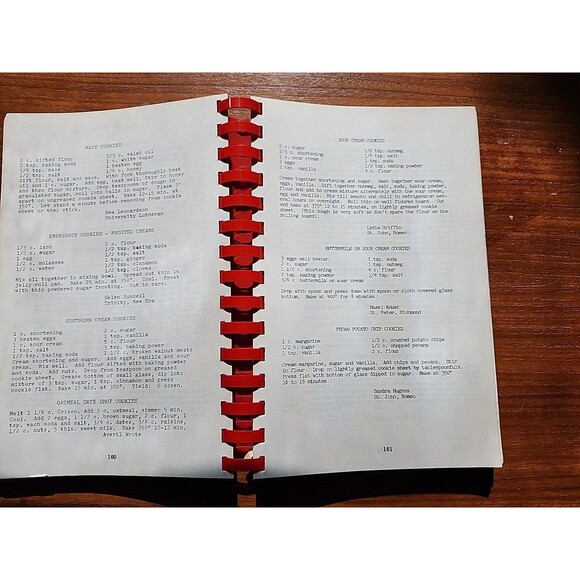 MACE COOKIES
2 c. sifted flour 2/3 c. salad oil
2 tsp. baking soda 1 c. white sugar
3/4 tsp. mace 1 beaten egg
1/2 tsp. salt 1/4 c. honey
Sift flour, salt and mace. Mix with fork thoroughly heat
oil and 1 c. sugar. Add egg, beat well. Stir in honey
and then flour mixture. Drop teaspoons of dough in
granulated sugar, roll into balls in sugar. Place 3"
apart on ungreased cookie sheet. Bake 10-15 min. at
350°. Let stand a minute before removing from cookie
sheet or they stick.
Bea Leonardson
University Lutheran
EMERGENCY COOKIES - FROSTED CREAMS
1/3 c. lard 2 c. flour
1/2 c. sugar 1/2 tsp. baking soda
1 egg 1/2 tsp. salt
1/2 c. molasses 1 tsp. ginger
1/2 c. water 1/2 tsp. cinnamon
1/2 tsp. cloves
Mix all together in mixing bowl. Spread out thin in
jelly roll pan. Bake 25 min. at 350°. Cool. Frost
with thin powdered sugar frosting. Cut in bars.
Helen Dundell
Trinity, New Era
SOUTHERN CREAM COOKIES
1 c. shortening 2 c. sugar
3 beaten eggs 1 tsp. vanilla
1 c. sour cream 5 c. flour
1 tsp. salt 3 tsp. baking power
1/2 tsp. baking soda 1 1/2 c. broken walnut meats
Cream shortening and sugar. Add eggs, vanilla and sour
cream. Mix well. Add flour sifted with baking powder
and soda. Add nuts. Drop from teaspoon on greased
cookie sheet. Grease bottom of small glass, dip into
mixture of 3 tsp. sugar, 1 tsp. cinnamon and press
cookie flat. Bake 15 min. at 350°. Yield: 6 dozen.
OATMEAL DATE DROP COOKIES
Melt 1 1/4 c. Crisco. Add 2 c. oatmeal, simmer 5 min.
Cool. Add 2 eggs, 1 1/2 c. brown sugar, 2 c. flour, 1
tsp. each soda and salt, 3/4 c. dates, 3/4 c. raisins,
1/2 c. nuts, 5 tbls. sweet milk. Bake 350° 10-12 min.
Averil Wrote
160
SOUR CREAM COOKIES
2 c. sugar 1/2 tsp. nutmeg
2/3 c. shortening 1/8 tsp. salt
1 c. sour cream 1 tsp. soda
2 eggs 1/2 tsp. baking powder
1 tsp. vanilla 4 c. flour
Cream together shortening and sugar. Then add sour cream,
eggs, vanilla. Sift together nutmeg, salt, soda, baking powder,
flour and add to cream mixture alternately with the sour cream,
egg and vanilla. Mix till smooth and chill in refrigerator sev-
eral hours or overnight. Roll thin on well floured board. Cut
and bake at 375° 12 to 15 minutes, on lightly greased cookie
sheet. (This dough is very soft so don't spare the flour on the
rolling board).
Lydia Griffin
St. John, Romeo
BUTTERMILK OR SOUR CREAM COOKIES
3 eggs well beaten 1 tsp. soda
2 c. sugar 1 tsp. nutmeg
2 1/2 c. shortening 4 c. flour
2 tsp. baking powder 1/2 tsp. salt
3/4 c. buttermilk or sour cream
Drop with spoon and press down with spoon or cloth covered glass
bottom. Bake at 400° for 8 minutes.
Hazel Knust
St. Peter, Richmond
PECAN POTATO CHIP COOKIES
1 c. margarine 1/2 c. crushed potato chips
1/2 c. sugar 1/2 c. chopped pecans
1 tsp. vanilla 2 c. flour
Cream margarine, sugar and vanilla. Add chips and pecans. Stir
in flour. Drop on lightly greased cookie sheet by tablespoonfuls.
Press flat with bottom of glass dipped in sugar. Bake at 350°
16 to 18 minutes
Sandra Hughes
St. John, Romeo
161